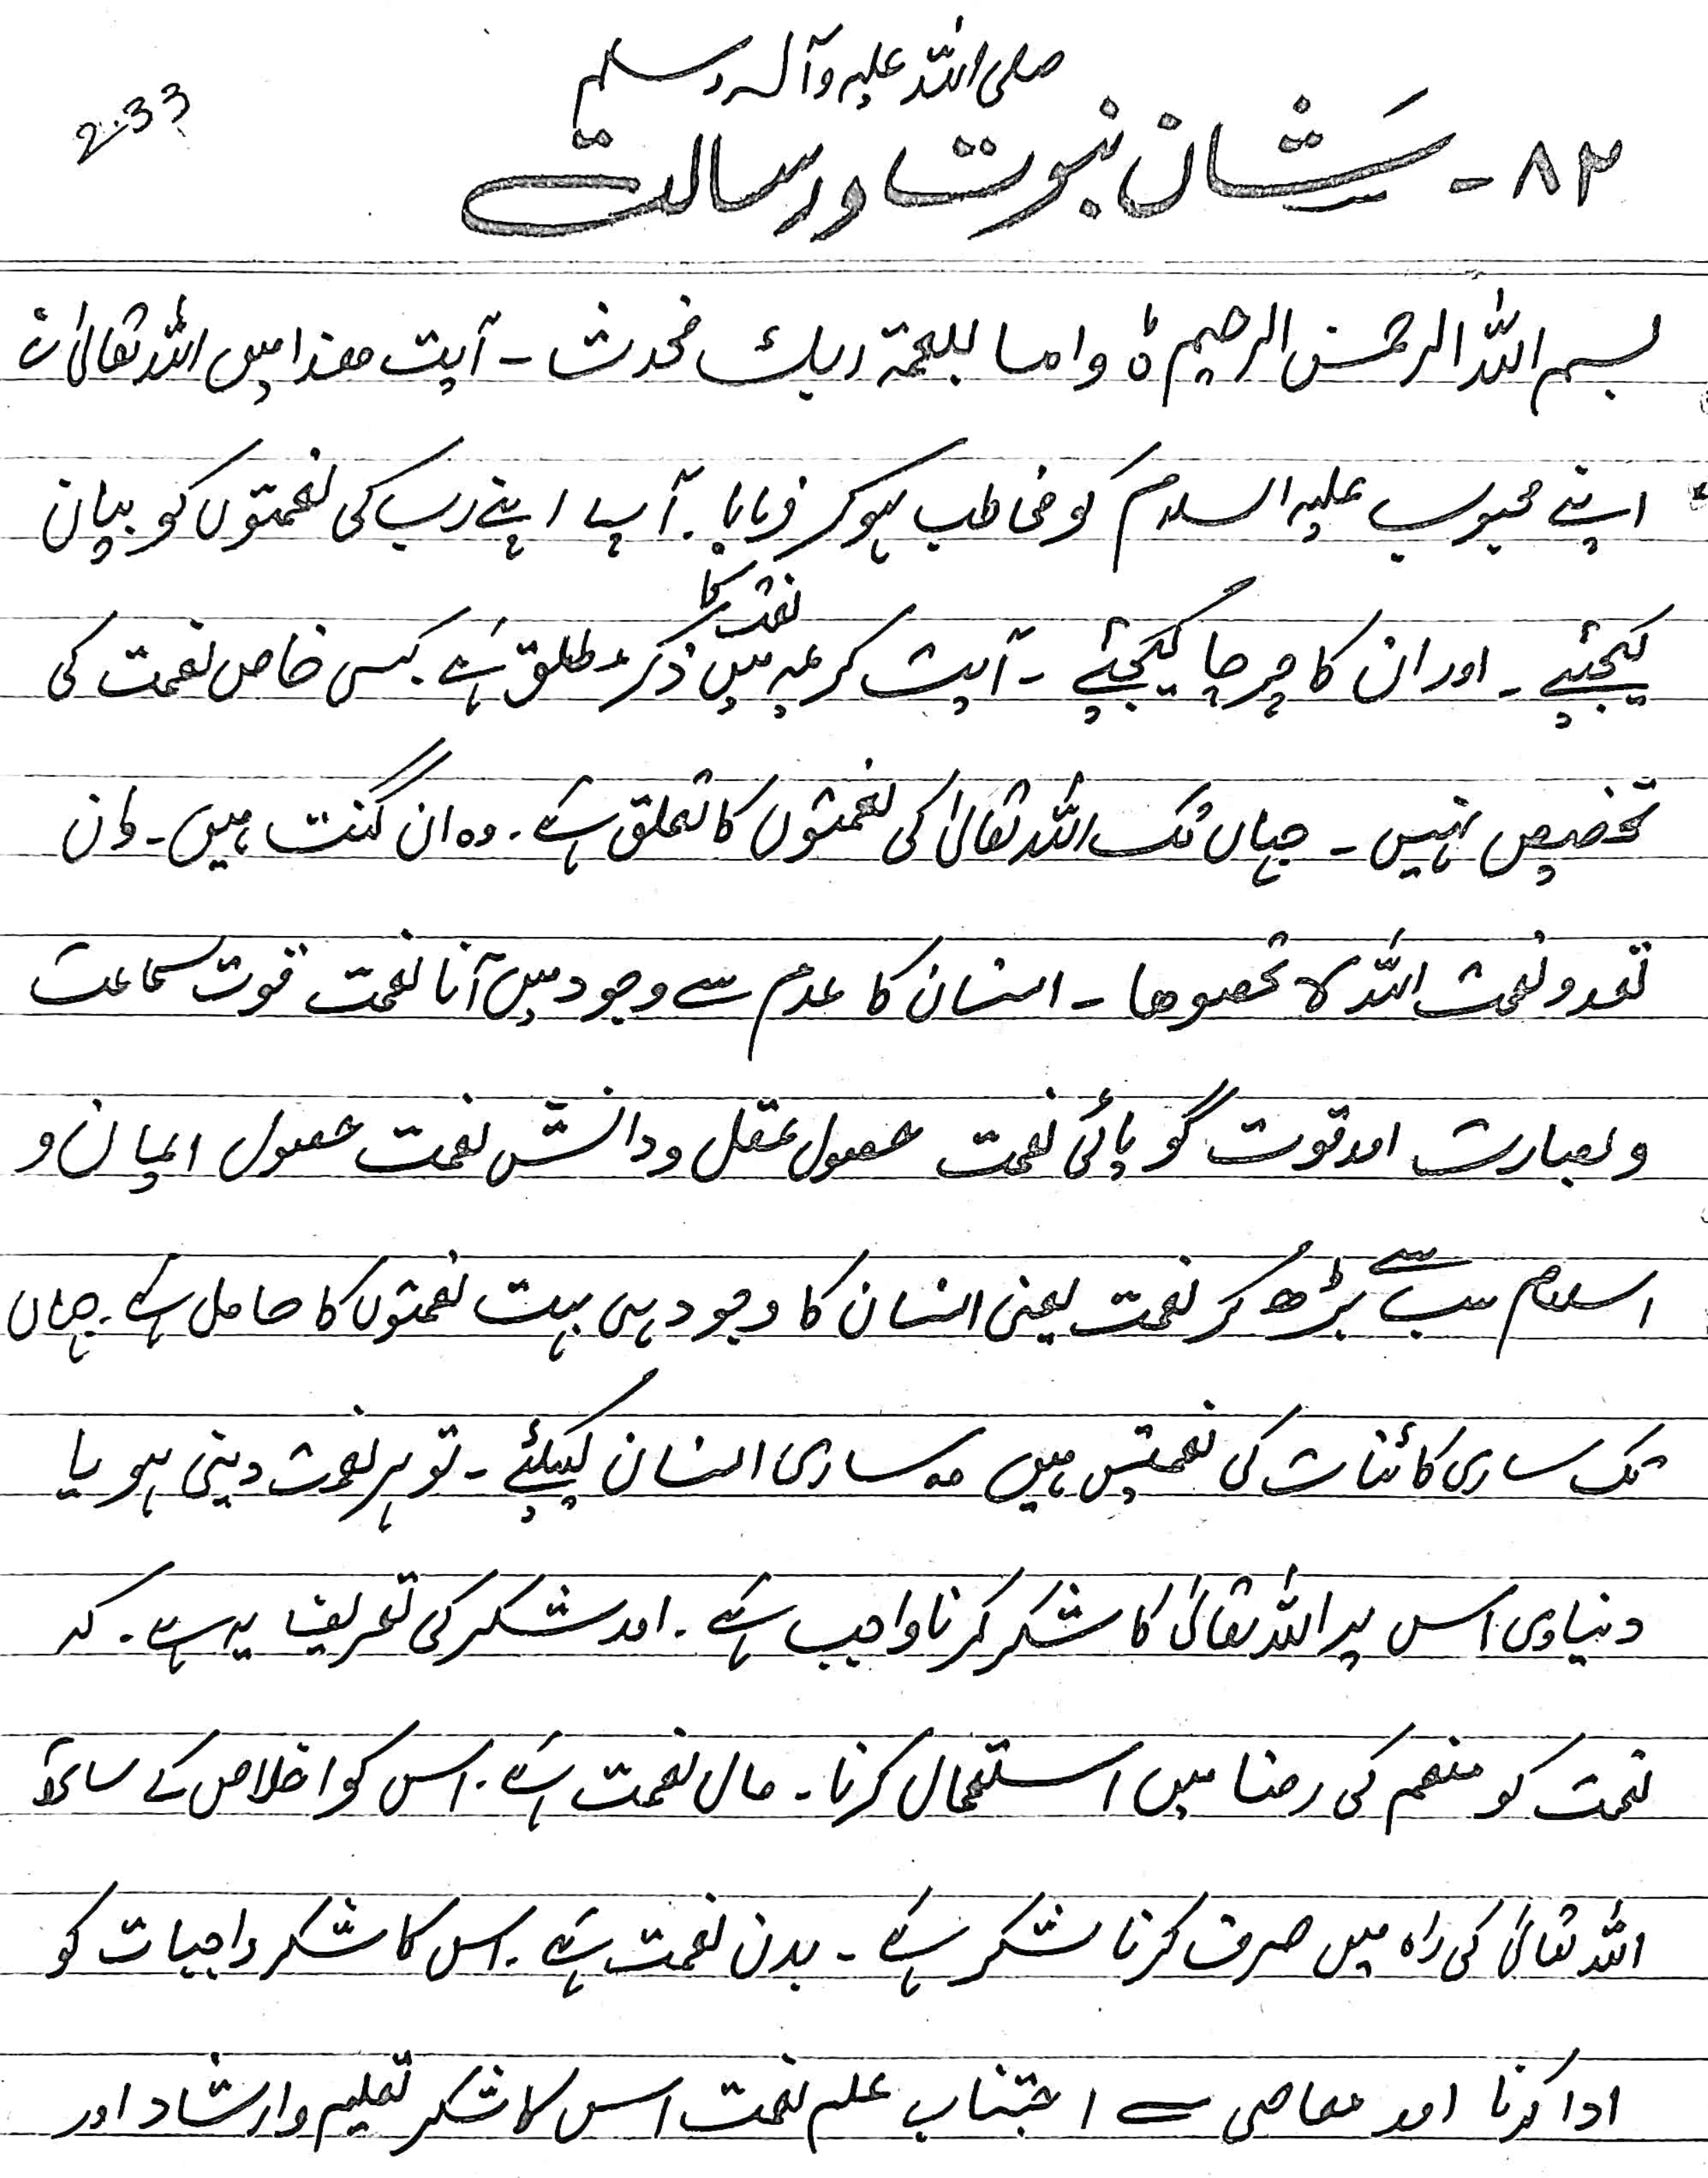 صلی اللہ علیہ وآلہ وسلم
2.33
۸۲ - شان نبوت و رسالت
بسم اللہ الرحمن الرحیم ہ واما بنعمۃ ربک فحدث - آیت ھذا میں اللہ تعالیٰ نے
اپنے محبوب علیہ السلام کو مخاطب ہوکر فرمایا . آپ اپنے رب کی نعمتوں کو بیان
کیجئیے - اور ان کا چرچا کیجئیے - آیت کریمہ میں نعمت کا ذکر مطلق ہے . کسی خاص نعمت کی
تخصیص نہیں - جہاں تک اللہ تعالیٰ کی نعمتوں کا تعلق ہے . وہ ان گنت ہیں - وان
تعدو نعمت اللہ لا تحصوھا - انسان کا عدم سے وجود میں آنا نعمت قوت سماعت
و بصارت اور قوت گویائی نعمت حصول عقل و دانش نعمت حصول ایمان و
اسلام سب سے بڑھ کر نعمت یعنی انسان کا وجود ہی بہت نعمتوں کا حامل ہے . جہاں
تک ساری کائنات کی نعمتیں ہیں وہ ساری انسان کیلئیے - تو ہر نعمت دینی ہو یا
دنیاوی اس پر اللہ تعالیٰ کا شکر کرنا واجب ہے . اور شکر کی تعریف یہ ہے . کہ
نعمت کو منعم کی رضا میں استعمال کرنا - مال نعمت ہے . اس کو اخلاص کے ساتھ
اللہ تعالیٰ کی راہ میں صرف کرنا شکر ہے - بدن نعمت ہے . اس کا شکر واجبات کو
ادا کرنا اور معاصی سے اجتناب علم نعمت اس کا شکر تعلیم وارشاد اور